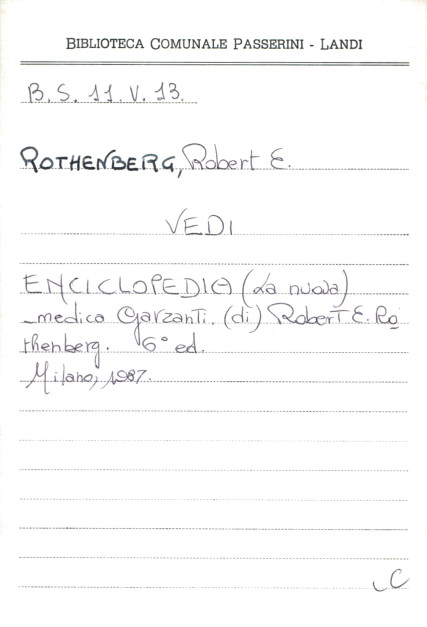 BIBLIOTECA COMUNALE PASSERINI - LANDI
B. S. 11. V. 13.
ROTHENBERG, Robert E.
VEDI
ENCICLOPEDIA (La nuova)
_medica Garzanti. (di) Robert E. Ro
thenberg. 6° ed.
Milano, 1987.
C